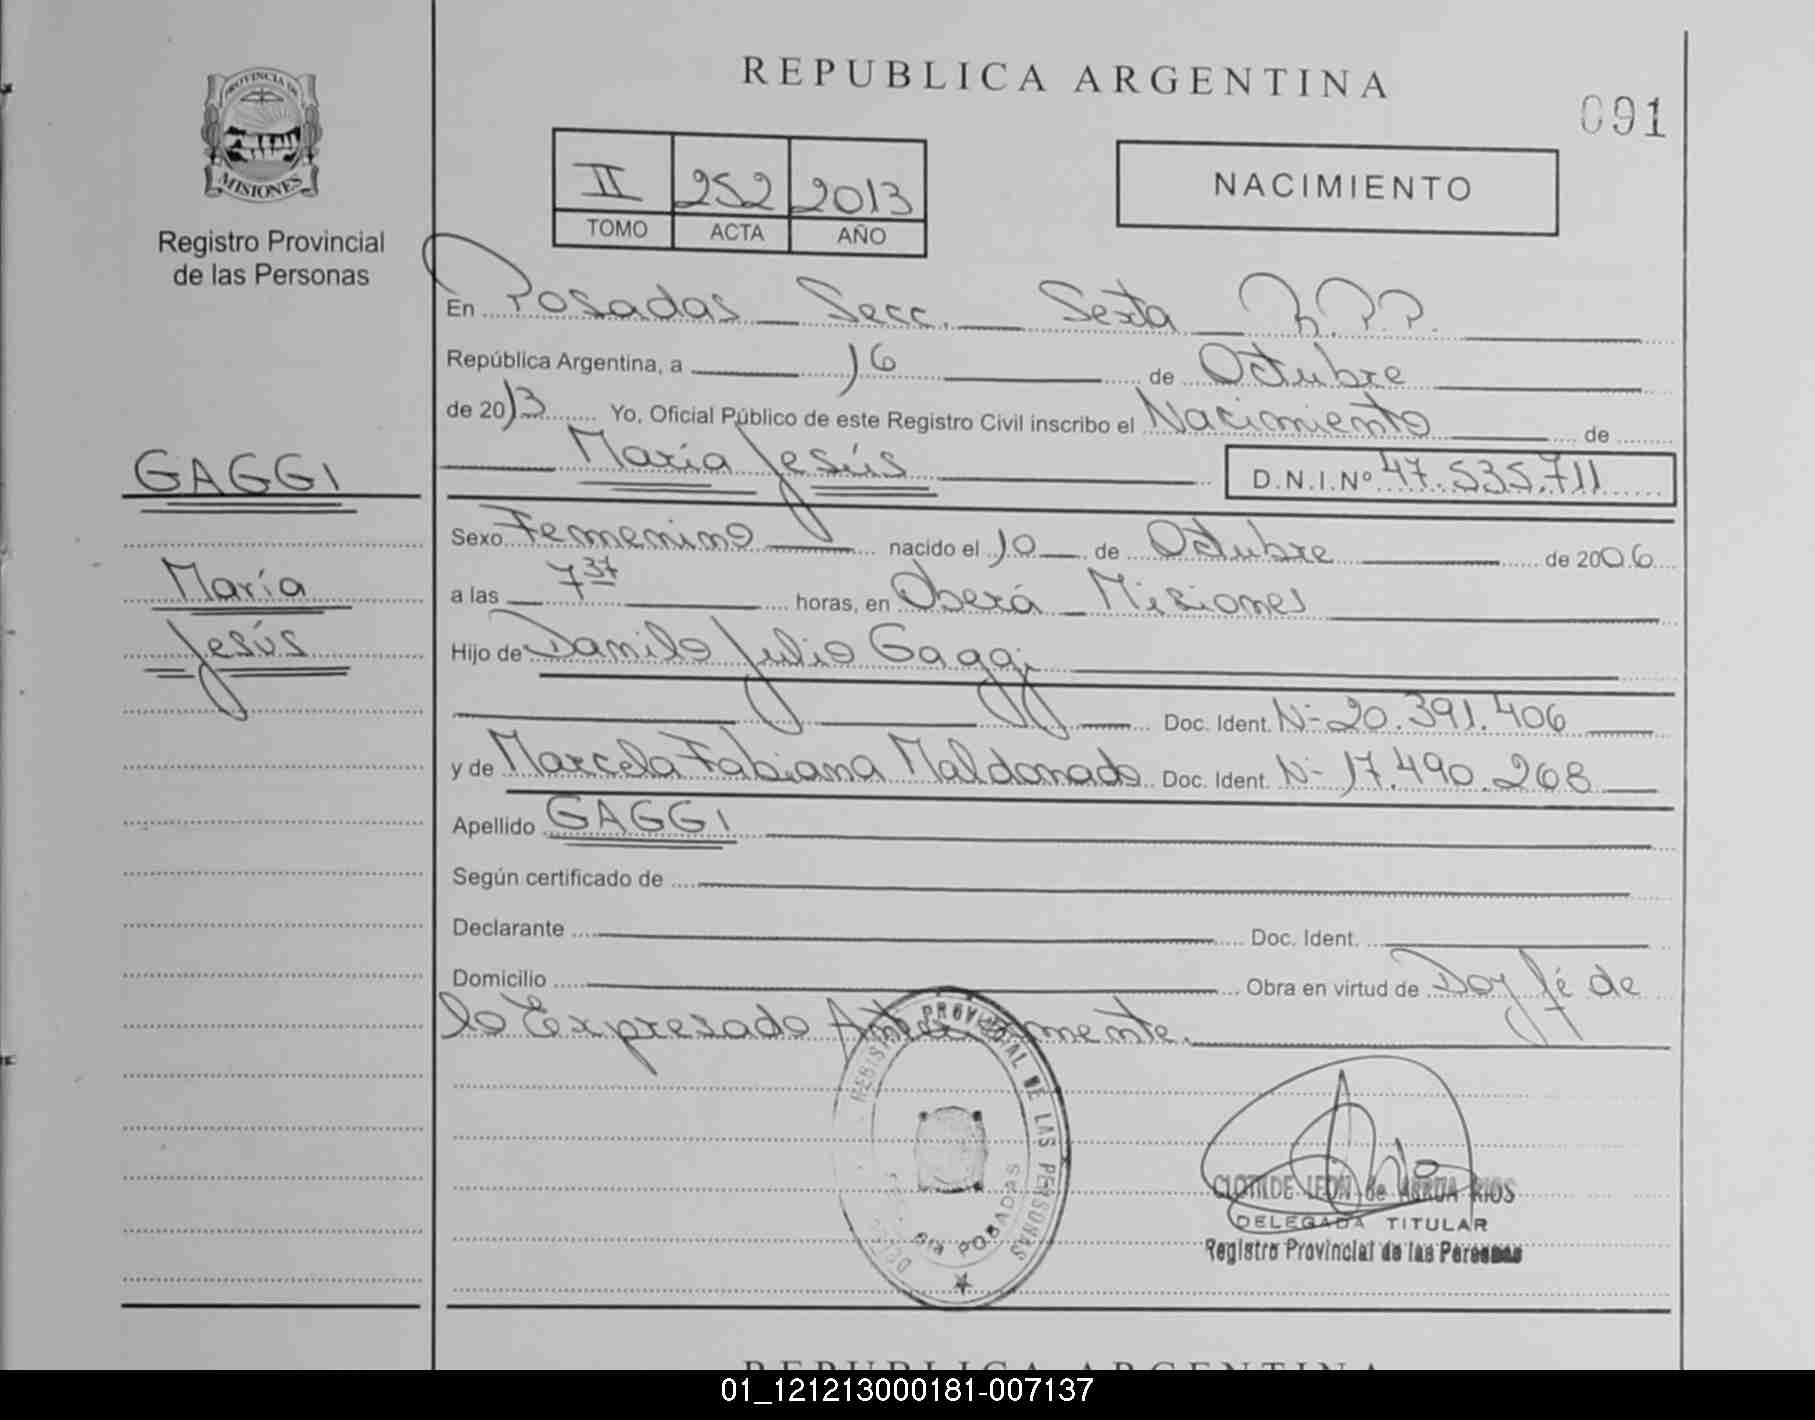 REPUBLICA ARGENTINA
091
PROVINCIA DE
MISIONES
Registro Provincial
de las Personas
II 252 2013
TOMO ACTA AÑO
NACIMIENTO
En Posadas Secc. Sexta R.P.P.
República Argentina, a 16 de Octubre
de 2013 Yo, Oficial Público de este Registro Civil inscribo el Nacimiento de
María Jesús D.N.I.Nº 47.535.711
GAGGI
María
Jesús
Sexo Femenino nacido el 10 de Octubre de 2006
a las 7 37 horas, en Oberá Misiones
Hijo de Danilo Julio Gaggi
Doc. Ident. Nº 20.391.406
y de Marcela Fabiana Maldonado Doc. Ident. Nº 17.490.268
Apellido GAGGI
Según certificado de
Declarante Doc. Ident.
Domicilio Obra en virtud de Doy fé de
lo Expresado
REGISTRO PROVINCIAL DE LAS PERSONAS
POSADAS
CLOTILDE LEON de ARRUA RIOS
DELEGADA TITULAR
Registro Provincial de las Personas
REPUBLICA ARGENTINA
01_121213000181-007137